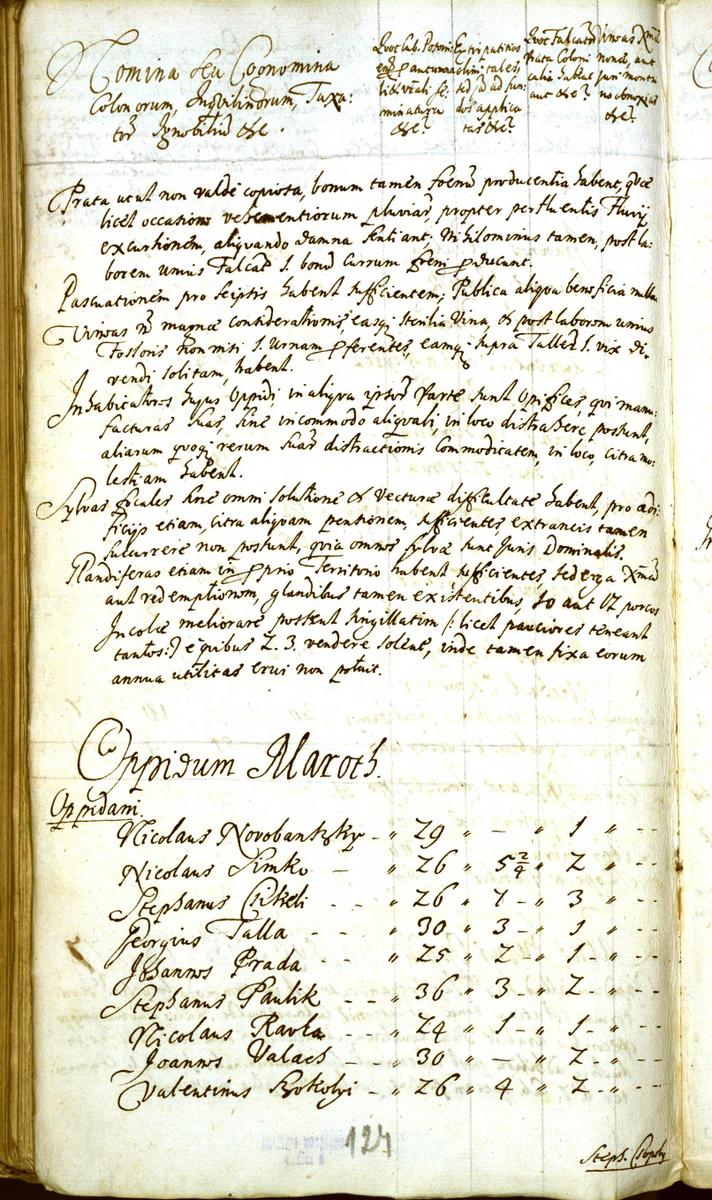 Nomina seu Cognomina
Colonorum, Inquilinorum, Taxa:
tor Ignobiliũ &c.
Quot sub. Posoni:
&c?
Extirpatitios
tales,
sed ad
dos applica
tas &c?
Quot Falcatoru
Prata Coloni
calia habeat
aut &c?
Vineas
nonae, aut
juri monta
no obnoxias
&c?
Prata utut non valde copiosa, bonum tamen foenũ producentia habent, quae
licet occasione vehementiorum pluviar, propter perfluentis Fluvij
excursionem, aliquando damna sentiant, Nihilominus tamen, post la-
borem unius Falcat 1. bonũ currum foeni producunt.
Pascuationem pro seipsis habent sufficientem; Publica aliqua beneficia nulla
Vineas ñ magnae considerationis, easq; sterilia Vina, et post laborem unius
Fossoris Homini 1. Urnam proferentes, eamq; supra Taller 1. vix di-
vendi solitam, habent.
Inhabitatores hujus Oppidi, in aliqua Parte sunt Opifices, qui manu:
facturas suas, sine incommodo aliquali, in loco distrahere possunt,
aliarum quoq; rerum suar distractionis commoditatem, in loco, citra mo:
lestiam habent.
Sylvas focales sine omni solutione et vecturae difficultate habent, pro aedi:
ficijs etiam, citra aliquam pensionem, sufficientes, extraneis tamen
succurrere non possunt, quia omnes sylvae sunt Juris Dominalis.
Glandiferas etiam in proprio Territorio habent sufficientes, sed erga
aut redemptionem, glandibus tamen existentibus, 10 aut 12 porcos
Incolae meliorare possent singillatim /: licet pauciores teneant
tantos :/ e quibus 2. 3. vendere solent, inde tamen fixa eorum
annua utilitas erui non potuit.
Oppidum Maroth.
Oppidani.
Nicolaus Novobanszky - „ 29 „ - „ 1 „ - -
Nicolaus Simko - „ 26 „ 5 2/4 „ 2 „ - -
Stephanus Csikeli - - „ 26 „ 7 - „ 3 „ - -
Georgius Talla - - - „ 30 „ 3 - „ 1 „ - -
Johannes Prada - - „ 25 „ 2 - „ 1 - „ - -
Stephanus Paulik - - „ 36 „ 3 - „ 2 - „ - -
Nicolaus Ravka - - „ 24 „ 1 - „ 1 - „ - -
Joannes Valach - - „ 30 „ - „ 2 - „ - -
Valentinus Kokolyi - „ 26 „ 4 „ 2 - „ - -
124
Steph.